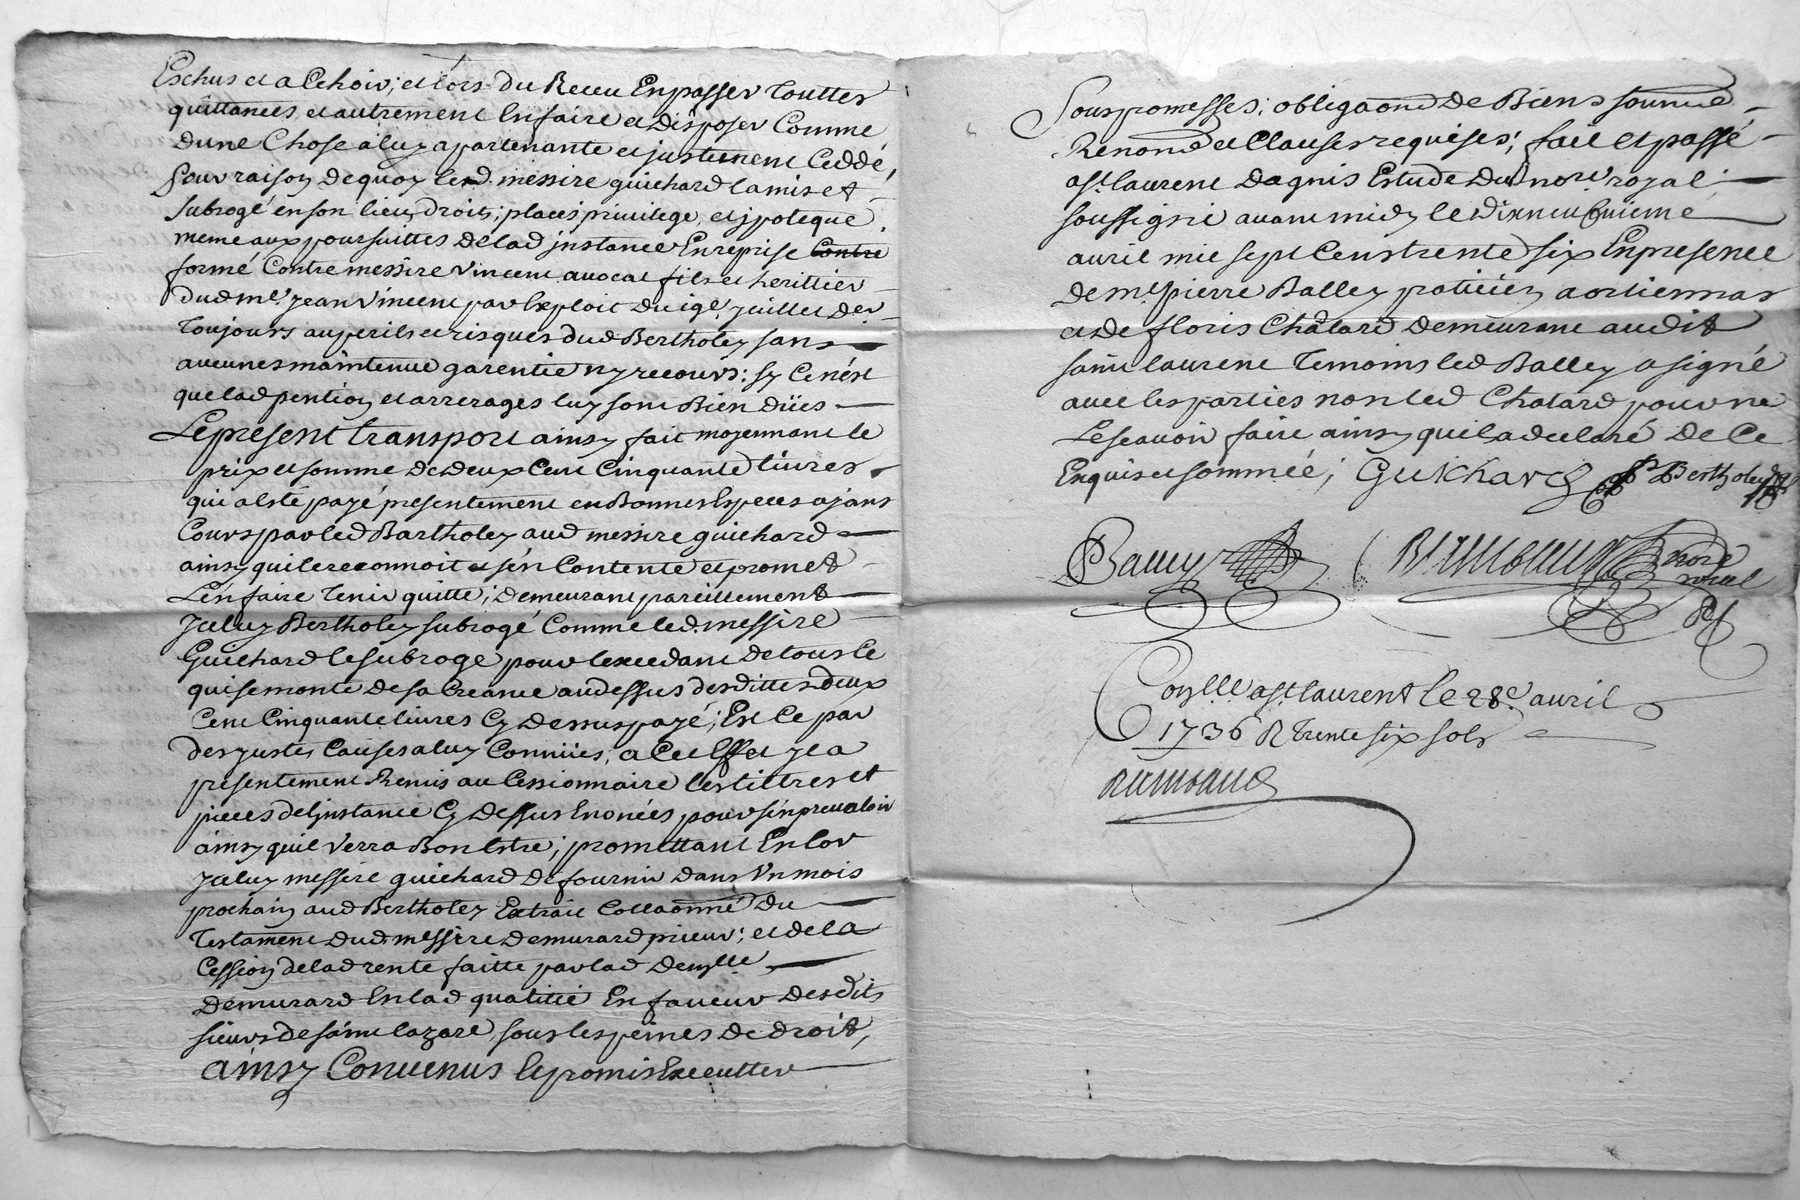 Eschus et a Echoir; et lors du Receu En passer Touttes
quittances et autrement En faire et Disposer Comme
dune Chose a luy apartenante et justement Ceddé,
Pour raison de quoy led. messire guichard la mis et
subrogé en son lieu, droits; places privilege et ypoteque
meme aux poursuittes de lad jnstance En reprise contre
formé Contre messire Vincent avocat fils et herittier
dud me. jean Vincent par Exploit du 19e. juillet der
Toujours aux perils et risques dud Bertholey sans
aucunes maintenue garentie ny recours; sy Ce n'est
que lad pention et arrerages luy sont Bien düës
Le present transport ainsy fait moyennant le
prix et somme de deux Cent Cinquante livres
qui a Esté payé presentement en Bonnes Especes ayans
Cours par led Bartholey aud messire guichard
ainsy quil le reconnoit et s'en Contente et promet
L'en faire Tenir quitte; demeurant pareillement
jceluy Bertholey subrogé Comme led. messire
Guichard le subroge pour lexcedant de tous le
qui se monte de sa Creance au dessus desdittes deux
Cent Cinquante livres Cy dessus payé; Est Ce par
des justes Causes a luy Connües; a Cet Effet jl a
presentement Remis au Cessionnaire les tiltres et
pieces deljnstance Cy Dessus Enoncés pour s'en prevaloir
ainsy quil Verra Bon Estre; promettant En lor
jceluy messire guichard de fournir dans Un mois
prochain aud Bertholey Extrait Collaonné du
Testament dud. messire demurard prieur; et de la
Cession de lad rente faitte par lad deuylle
demurard En lad qualitté En faveur desdits
sieurs de saint lazare sous les peines de droit,
ainsy Convenus les promis Executter
Sous promesses; obligaond de Biens soumis
Renond et Clauses requises; fait et passé
a st. laurent dagnis Estude du nore. royal
soussigné avant midy le dixneuf uieme
avril mil sept Cens trente six En presence
de me. pierre Balley patitien a ortiennas
et de floris Chatard demeurant audit
saint laurent Temoins led Balley a signé
avec les parties non led Chatard pour ne
Le scavoir faire ainsy quil a declaré de Ce
Enquis et sommée; Guichard P Bertholey
Balley nore royal
Coylle a st. laurent le 28e. avril
1736 R trente six sols